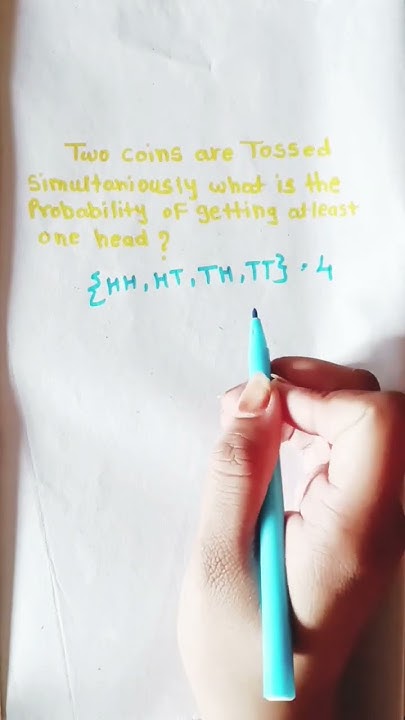 Two coins are Tossed
Simultaniously what is the
Probability of getting atleast
one head ?
{HH, HT, TH, TT} · 4